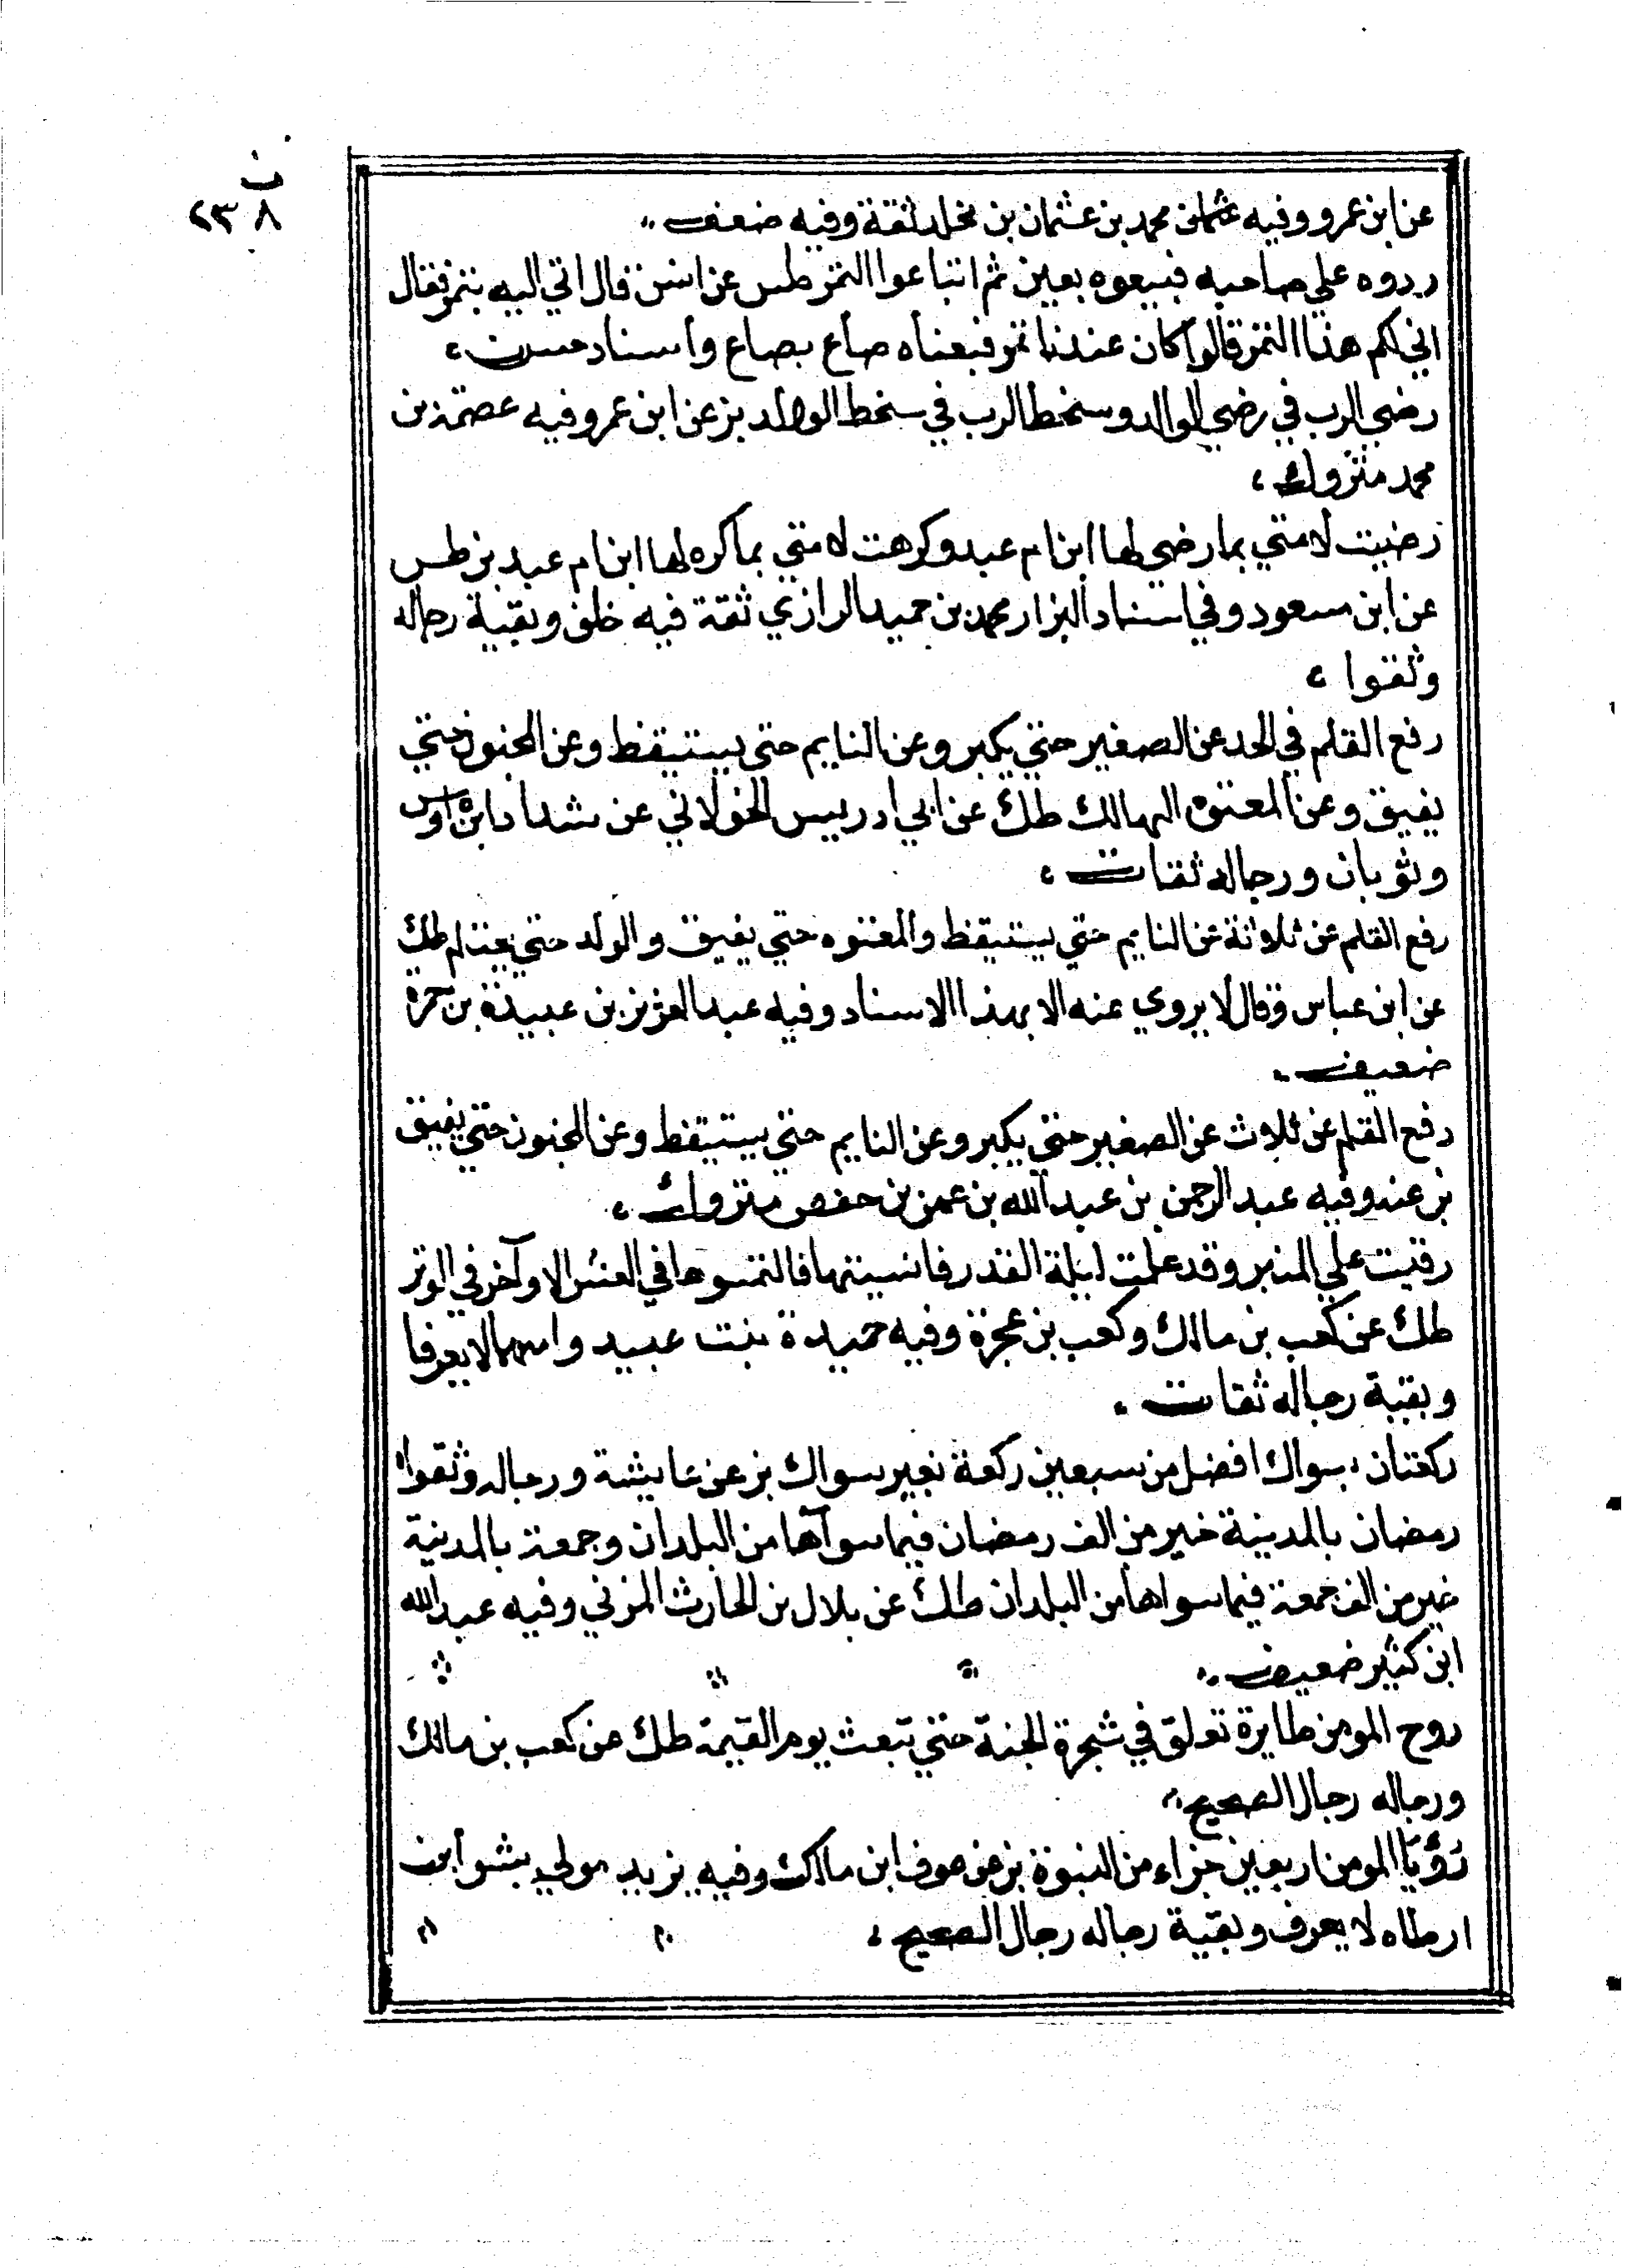 ب
٢٣٨
عن ابن عمرو وفيه عثمان محمد بن عثمان بن مخلد ثقة وفيه ضعف
ردوه علي صاحبه فبيعوه بعين ثم ابتاعوا التمر طس عن انس قال اتي اليه بتمر فقال
اني لكم هذا التمر قالوا كان عندنا تمر فبعناه صاع بصاع واسناد حسن
رضي الرب في رضي الوالد وسخط الرب في سخط الوالد بز عن ابن عمرو فيه عصمة بن
محمد متروك
رضيت لامتي بما رضي لها ابن ام عبد وكرهت لامتي بما كره لها ابن ام عبد بز طس
عن ابن مسعود وفي اسناد البزار محمد بن حميد الرازي ثقة فيه خلف وبقية رجاله
وثقوا
رفع القلم في الحد عن الصغير حتي يكبر وعن النايم حتي يستيقظ وعن المجنون حتي
يفيق وعن المعتوه الهالك طك عن ابي ادريس الخولاني عن شداد ابن اوس
وثوبان ورجاله ثقات
رفع القلم عن ثلاثة عن النايم حتي يستيقظ والمعتوه حتي يفيق والولد حتي يحتلم طك
عن ابن عباس وقال لا يروي عنه الا بهذا الاسناد وفيه عبد العزيز بن عبيدة بن حمزة
ضعيف
رفع القلم عن ثلاث عن الصغير حتي يكبر وعن النايم حتي يستيقظ وعن المجنون حتي يفيق
بز عنه وفيه عبد الرحمن بن عبد الله بن عمر بن حفص متروك
رقيت علي المنبر وقد علمت ليلة القدر فانسيتها فالتمسوها في العشر الاوآخر في الوتر
طك عن كعب بن مالك وكعب بن عجرة وفيه حميدة بنت عبيد وامها لا يعرفا
وبقية رجاله ثقات
ركعتان بسواك افضل من سبعين ركعة بغير سواك بز عن عايشة ورجاله وثقوا
رمضان بالمدينة خير من الف رمضان فيما سوآها من البلدان وجمعة بالمدينة
خير من الف جمعة فيما سواها من البلدان طك عن بلال بن الحارث المزني وفيه عبد الله
ابن كثير ضعيف
روح المومن طايرة تعلق في شجرة الجنة حتي تبعث يوم القيمة طك عن كعب بن مالك
ورجاله رجال الصحيح
رؤيا المومن اربعين جزاء من النبوة بز عن عوف ابن مالك وفيه يزيد مولي بشر ابن
ارطاه لا يعرف وبقية رجاله رجال الصحيح